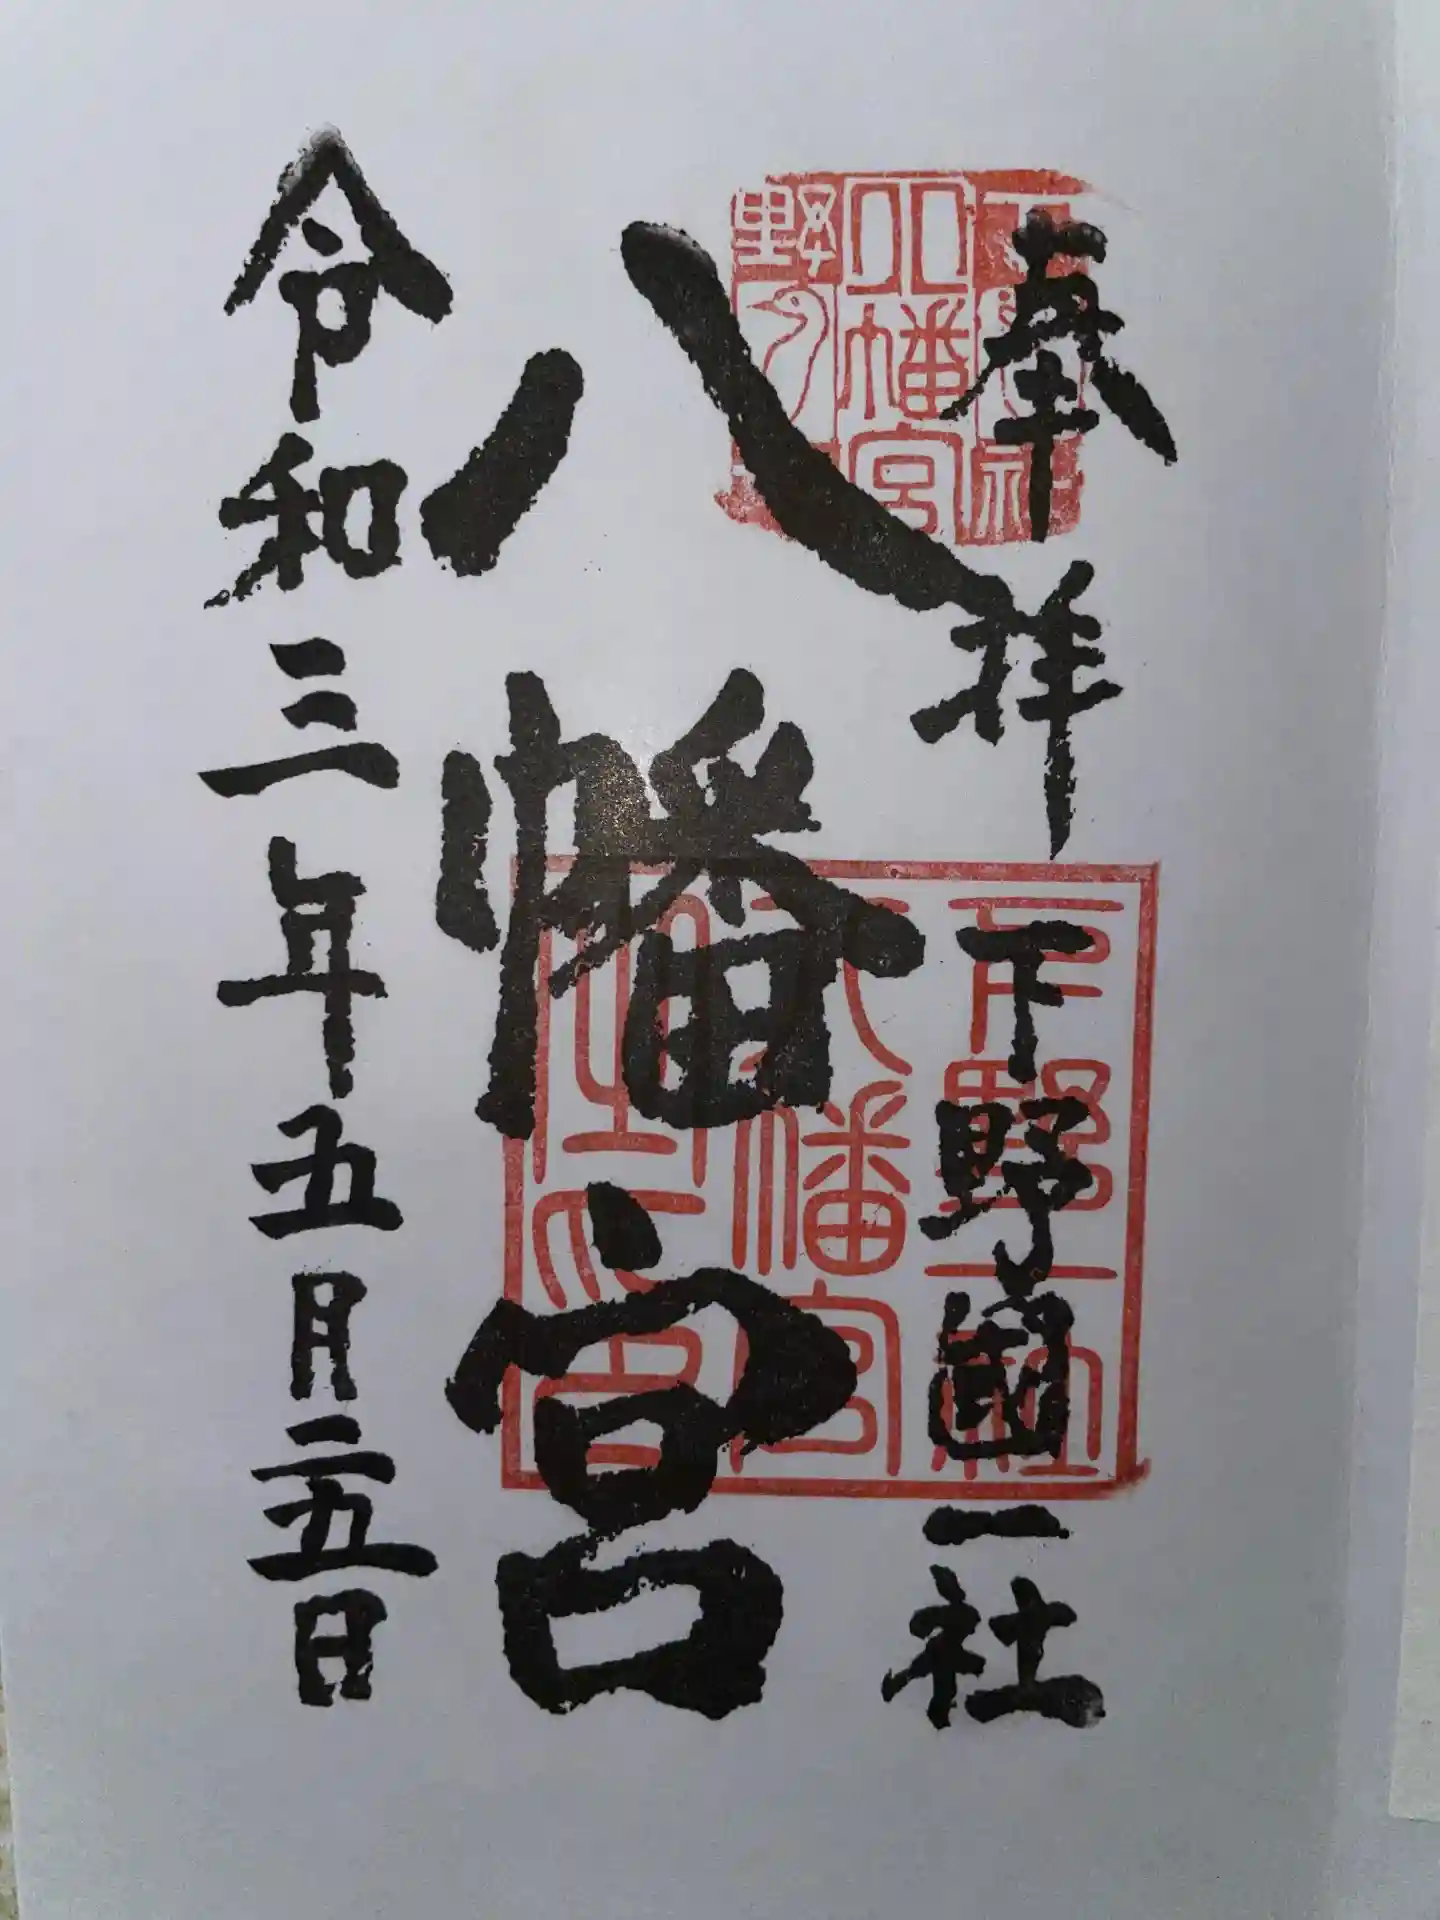 奉拝
下野國一社
八幡宮
令和三年五月二五日
八幡宮
八幡宮